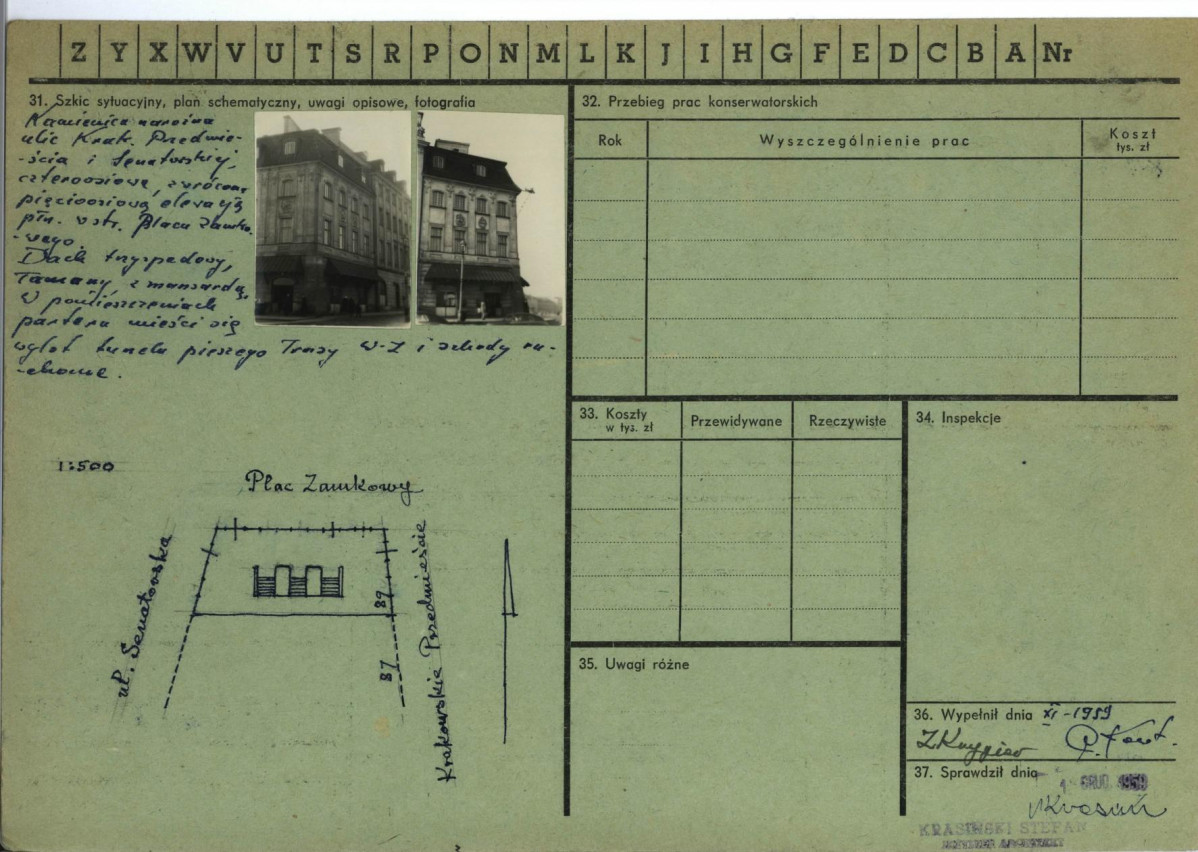 Z Y X W V U T S R P O N M L K J I H G F E D C B A Nr
31. Szkic sytuacyjny, plan schematyczny, uwagi opisowe, fotografia
Kamienica narożna
ulic Krak. Przedmie-
-ścia i Senatorskiej,
czteroosiowa, zwrócona
pięcioosiową elewacją
płn. w str. Placu Zamko-
-wego.
Dach trzyspadowy,
łamany, z mansardą.
W pomieszczeniach
parteru mieści się
wylot tunelu pieszego Trasy W-Z i schody ru-
-chome.
1:500
Plac Zamkowy
ul. Senatorska
89
87
Krakowskie Przedmieście
32. Przebieg prac konserwatorskich
Rok
Wyszczególnienie prac
Koszt
tys. zł
33. Koszty
w tys. zł
Przewidywane
Rzeczywiste
34. Inspekcje
35. Uwagi różne
36. Wypełnił dnia XI-1959
37. Sprawdził dnia
1 GRUD. 1959
KRASIŃSKI STEFAN